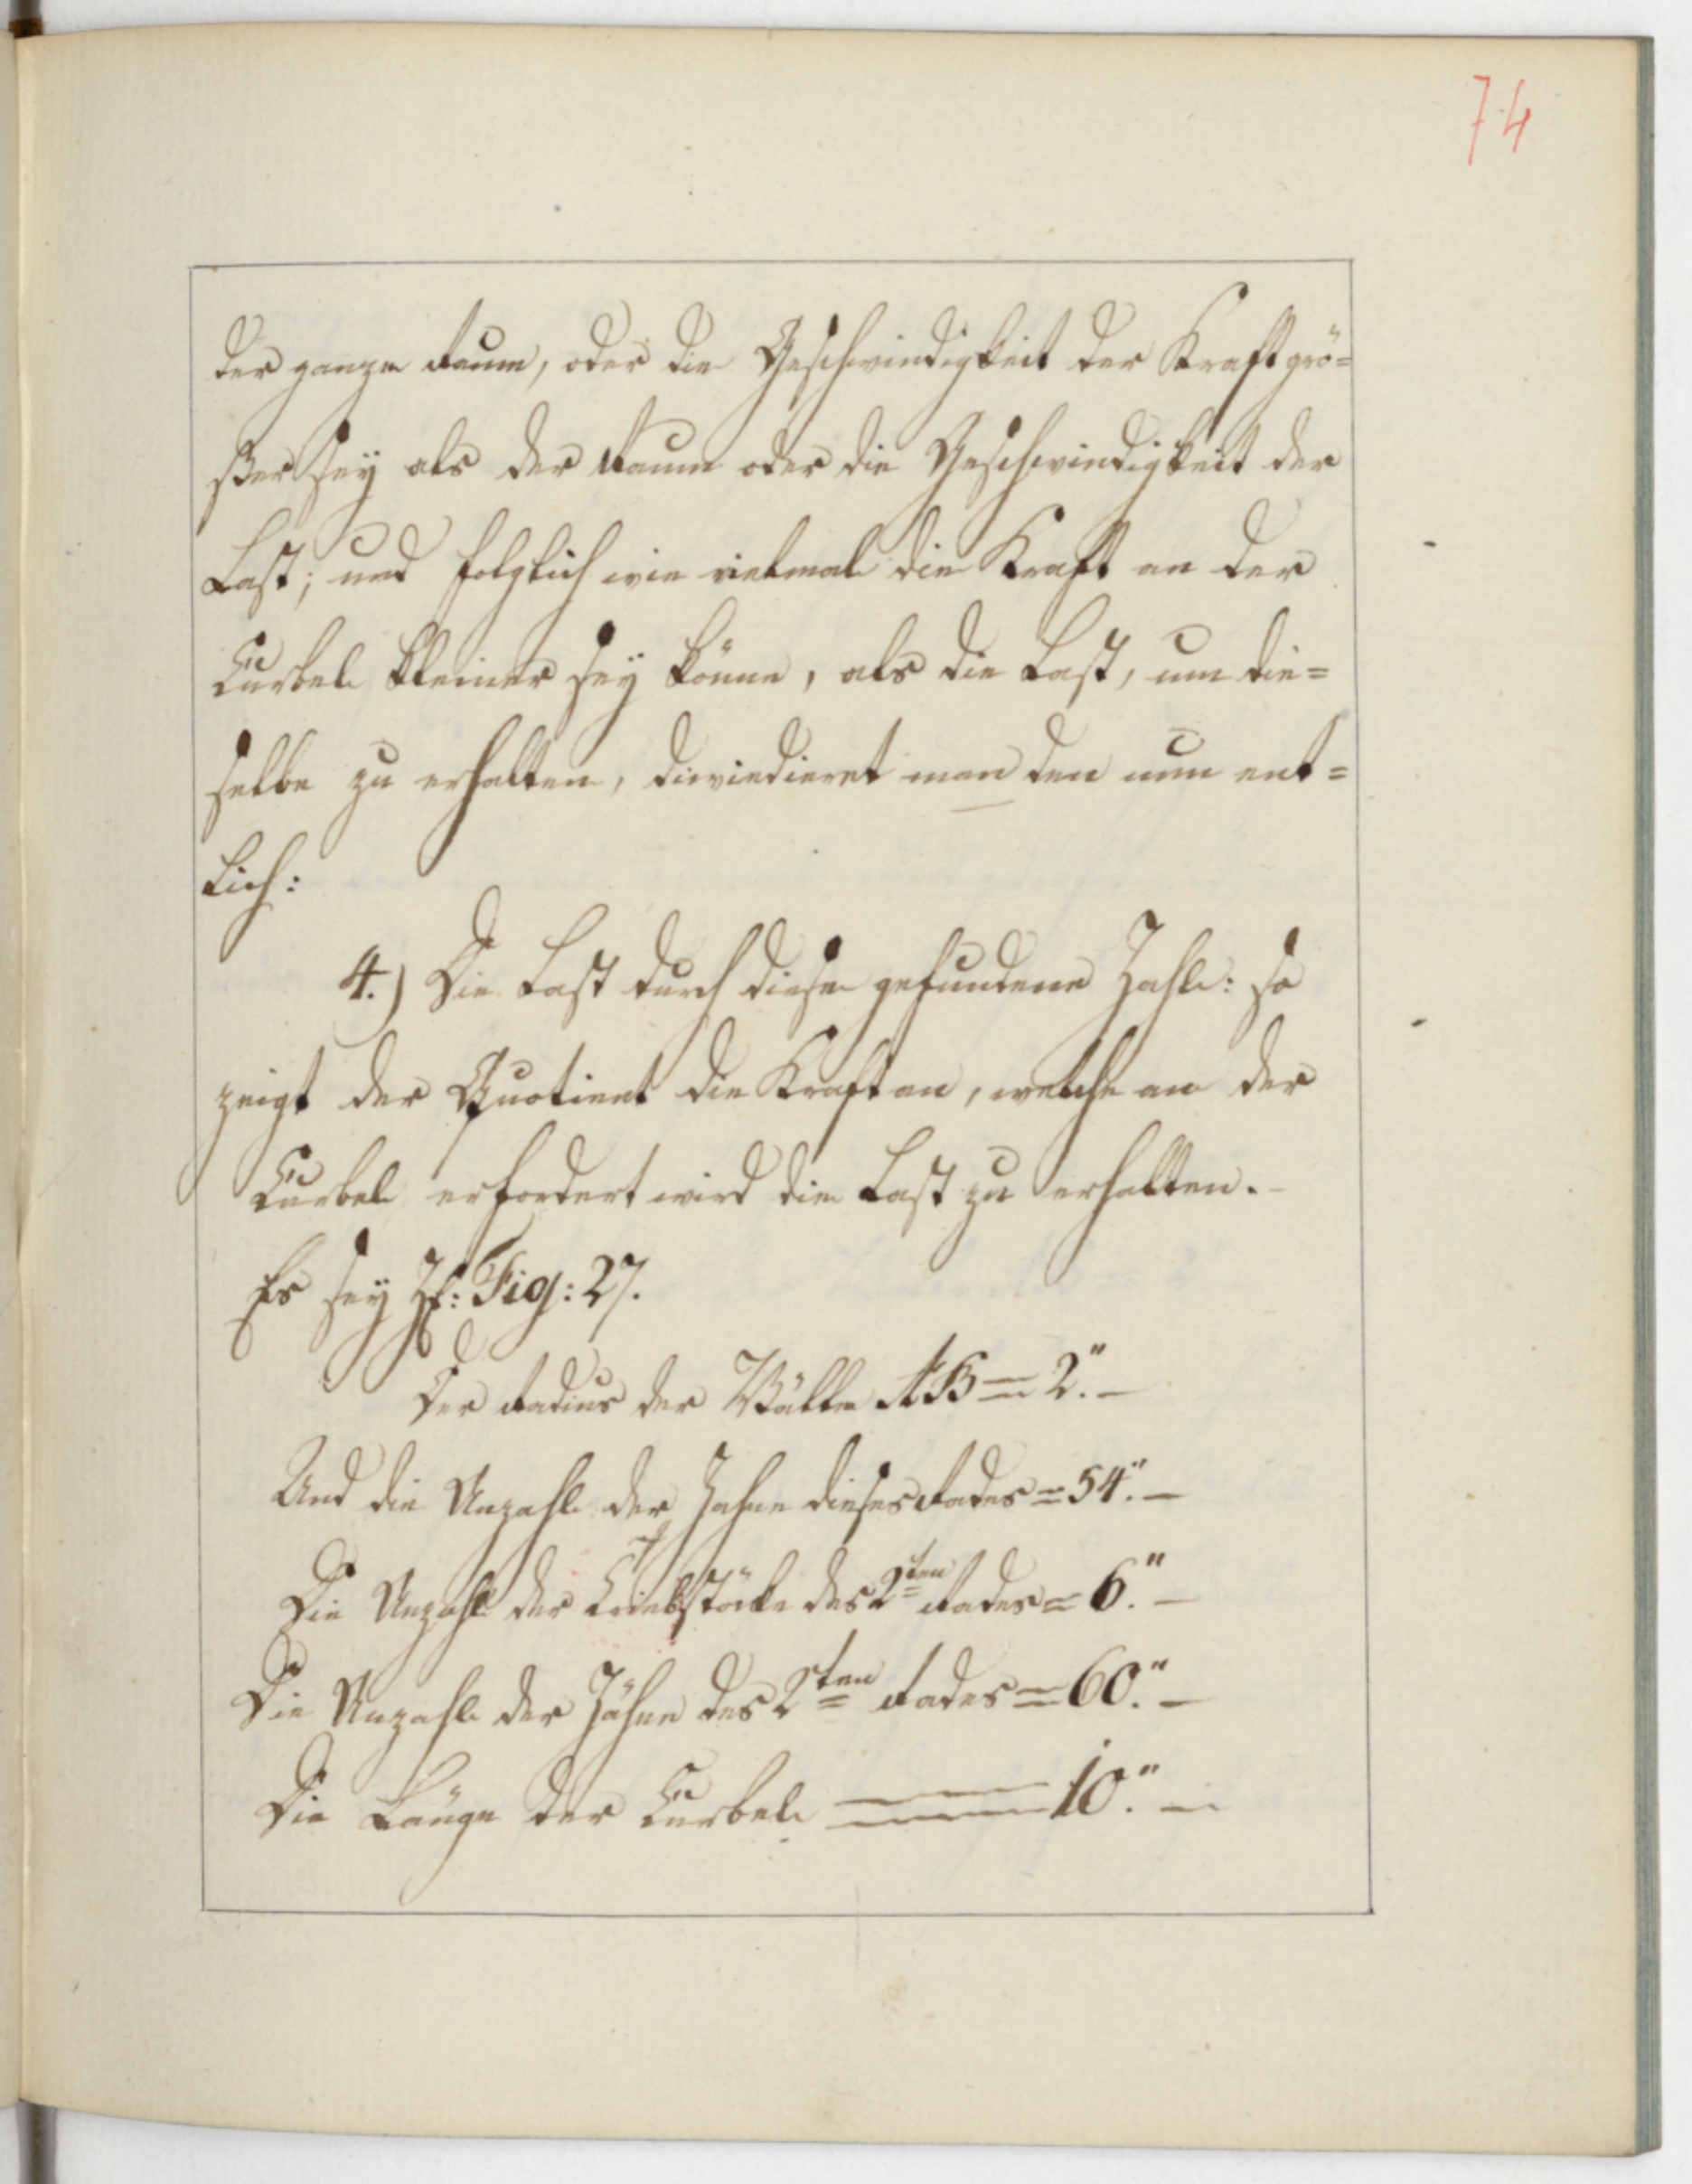 74
der ganze Raum, oder die Geschwindigkeit der Kraft grö=
ßer sey als der Raum oder die Geschwindigkeit der
Last; und folglich wie vielmal die Kraft an der
Curbel kleiner sey könne, als die Last, um die=
selbe zu erhalten, diviedieret man den nun ent=
lich:
4.) Die Last durch diese gefundene Zahl: so
zeigt der Quotient die Kraft an, welche an der
Curbel erfordert wird die Last zu erhalten. -
Es sey Zf: Fig: 27.
Der Radius der Wälle AB = 2." -
Und die Anzahl der Zahne dieses Rades = 54." -
Die Anzahl der Triebstöcke des 2ten Rades = 6." -
Die Anzahl der Zähne des 2ten Rades = 60." -
Die Länge der Curbel = 10." -